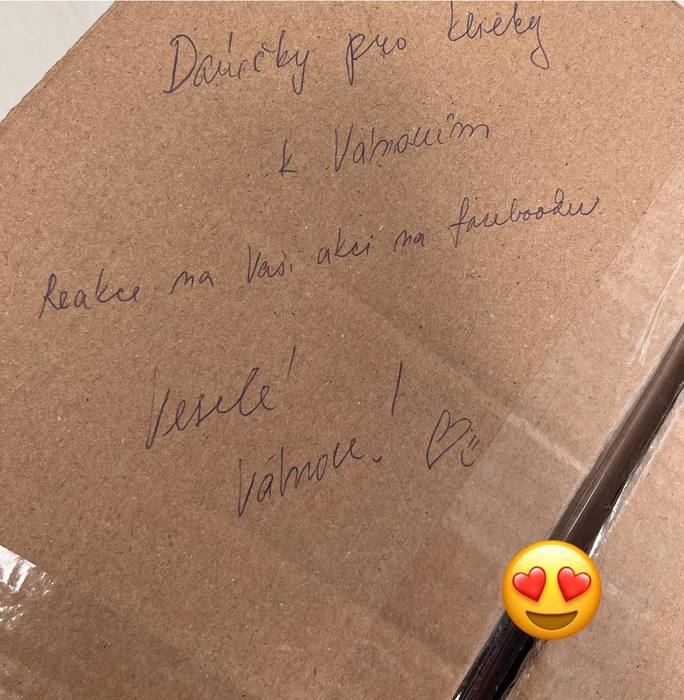 Dárečky pro kličky
k Vánocům
Reakce na Vaši akci na facebooku
Veselé
Vánoce!